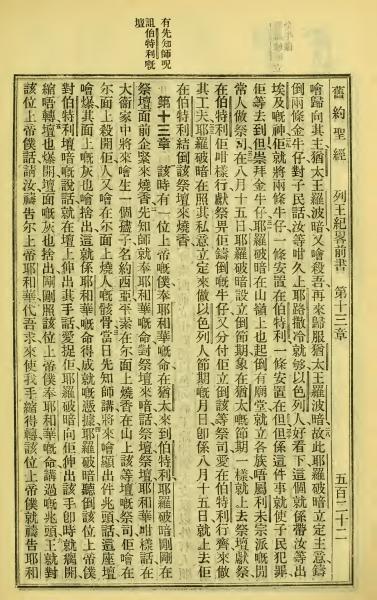 舊約聖經　列王紀畧前書　第十二章　五百二十二
噲歸向其主猶太王羅波暗又噲殺吾再來歸服猶太王羅波暗故此耶羅破暗立定主意鑄
倒兩條金牛仔對子民話汝等咁久上耶路撒冷就够以色列人好看下這個就係帶汝等出
埃及嘅神佢就將兩條牛仔一條安置在伯特利一條安置在但但係這件事就使子民犯罪
佢等去到但崇拜金牛仔耶羅破暗在山嶺上也起倒有廟堂就立各族唔屬利未宗派嘅閒
常人做祭司在八月十五日耶羅破暗設立倒節期象在猶太嘅節期一樣就上去祭壇獻祭
在伯特利佢咁樣行獻祭畀佢鑄倒嘅牛仔又分付佢立倒該等祭司愛在伯特利行齊來做
其工夫耶羅破暗在照其私意立定來做以色列人節期嘅月日卽係八月十五日就上去佢
在伯特利結倒該祭壇來燒香
第十三章　該時有一位上帝嘅僕奉耶和華嘅命在猶太來到伯特利耶羅破暗剛剛在
祭壇面前企緊來燒香先知師就奉耶和華嘅命對祭壇來喑話祭壇祭壇耶和華咁樣話在
大衞家中將來噲生一個孻子名約西亞平素在尔面上燒香在山上該等壇嘅祭司佢噲在
尔面上殺開佢人又噲在尔面上燒人嘅骸骨當日先知師講將來噲顯出件兆頭話這座壇
噲爆其面上嘅灰也噲捨出這就係耶和華嘅命得成就嘅憑據耶羅破暗聽倒該位上帝僕
對伯特利壇喑嘅說話就在壇上伸出其手話愛捉佢耶羅破暗向佢伸出該手卽時就𤺥開
縮唔轉壇也爆開壇面嘅灰也捨出剛剛照該位上帝僕奉耶和華嘅命講過嘅兆頭王就對
該位上帝僕話請汝禱告尔上帝耶和華代吾求來使我手縮得轉該位上帝僕就禱告耶和
有先知師呪
詛伯特利嘅
壇